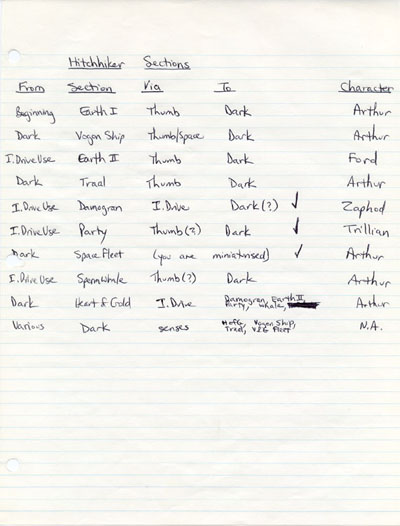 Hitchhiker Sections
From Section Via To Character
Beginning Earth I Thumb Dark Arthur
Dark Vogon Ship Thumb/Space Dark Arthur
I.Drive Use Earth II Thumb Dark Ford
Dark Traal Thumb Dark Arthur
I.Drive Use Damogran I.Drive Dark(?) ✓ Zaphod
I.Drive Use Party Thumb(?) Dark ✓ Trillian
Dark Space Fleet (you are miniaturised) ✓ Arthur
I.Drive Use Spermwhale Thumb(?) Dark Arthur
Dark Heart of Gold I.Drive Damogran, Earth II, Arthur
Party, Whale,
Various Dark senses HofG, Vogon Ship, N.A.
Traal, Fleet